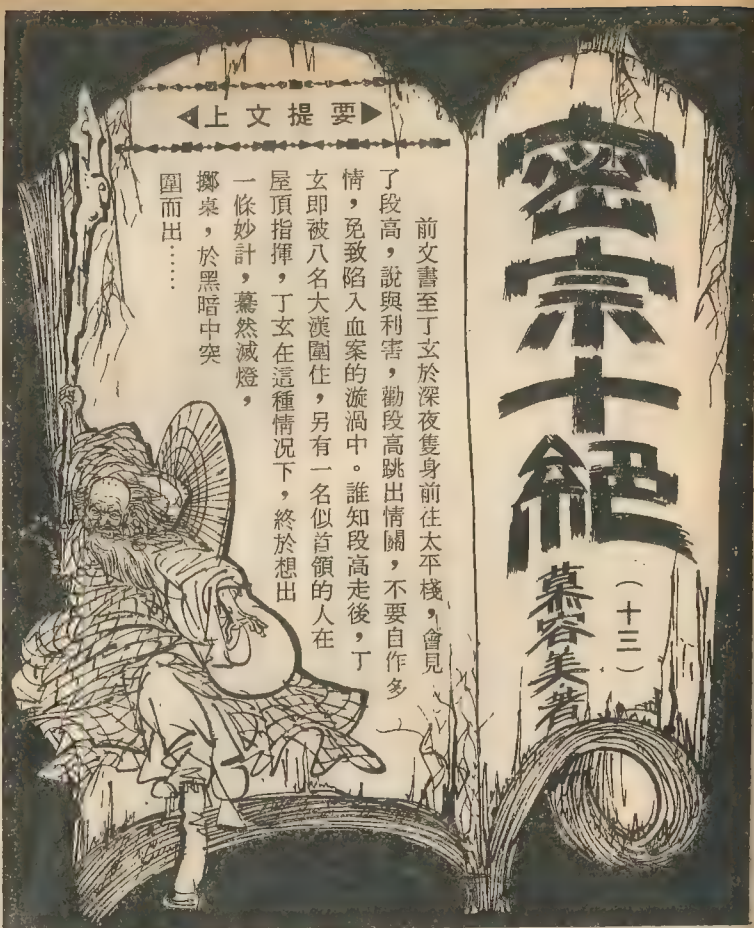 密宗十絕
(十三)
慕容美著
▶要提文上◀
前文書至丁玄於深夜隻身前往太平棧,會見
了段高,說與利害,勸段高跳出情關,不要自作多
情,免致陷入血案的漩渦中。誰知段高走後,丁
玄即被八名大漢圍住,另有一名似首領的人在
屋頂指揮,丁玄在這種情况下,終於想出
一條妙計,驀然滅燈,
擲桌,於黑暗中突
圍而出……